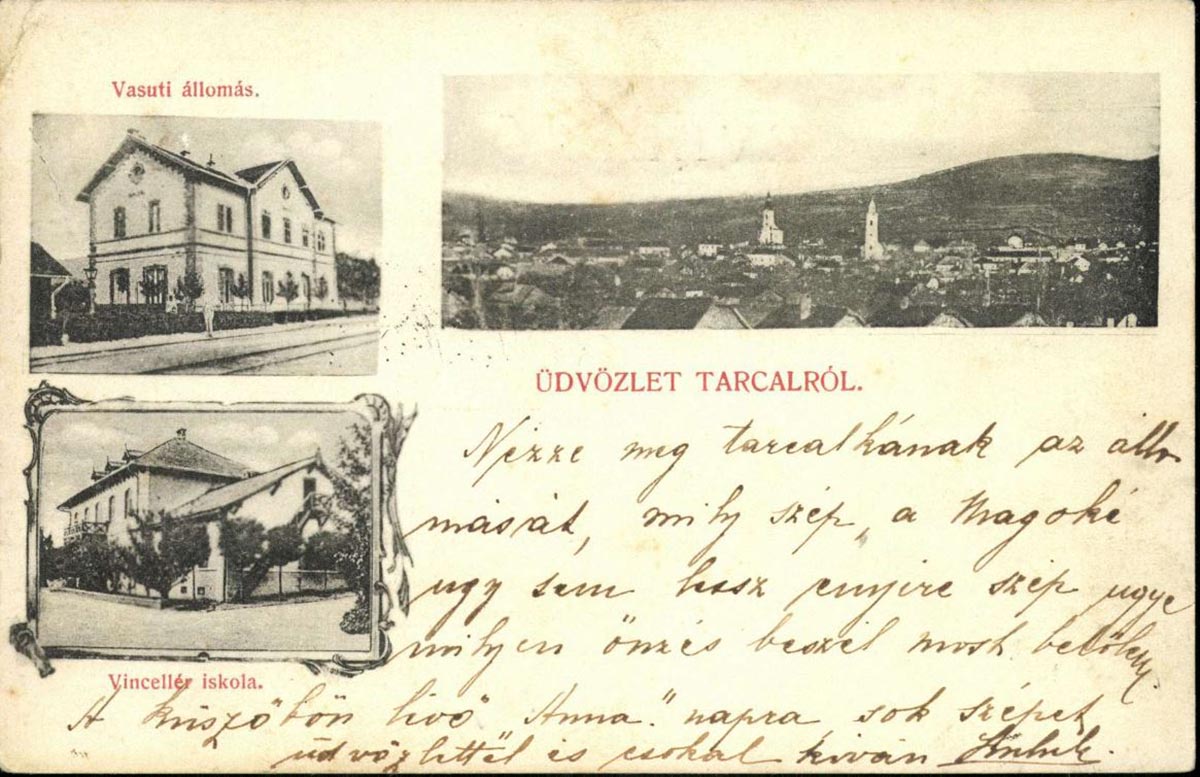 Vasuti állomás.
ÜDVÖZLET TARCALRÓL.
Vincellér iskola.
Nézze meg tarcalkának az állo
mását, mily szép, a Magoké
ugy sem lesz enyire szép ugye
milyen önzés beszél most belőlem.
A küszöbön livő "Anna" napra sok szépet
üdvözlettel és csokal kiván